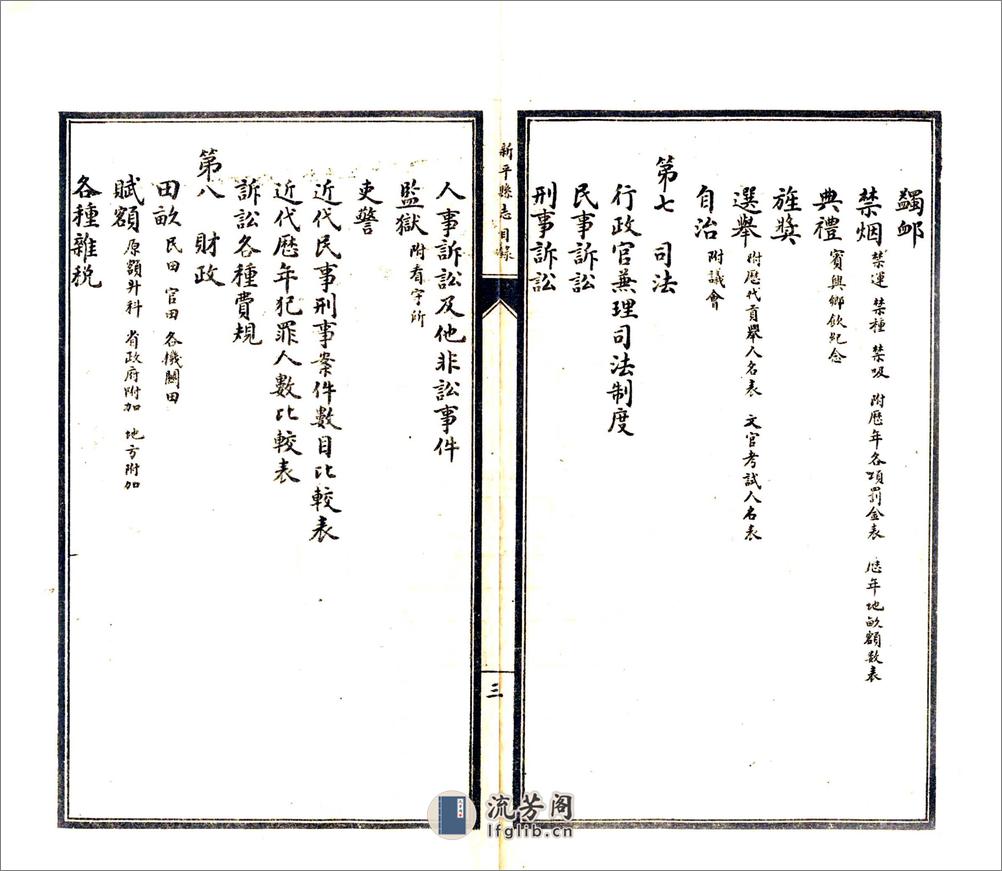 蠲卹
禁烟 禁運 禁種 禁吸 附歷年各項罰金表 歷年地畝額數表
典禮 賓興鄉飲紀念
旌獎
選舉 附歷代貢舉人名表 文官考試人名表
自治 附議會
第七 司法
行政官兼理司法制度
民事訴訟
刑事訴訟
新平縣志目錄
三
人事訴訟及他非訟事件
監獄 附看守所
吏警
近代民事刑事案件數目比較表
近代歷年犯罪人數比較表
訴訟各種費規
第八 財政
田畝 民田 官田 各機關田
賦額 原額升科 省政府附加 地方附加
各種雜稅
流芳阁
lfglib.cn